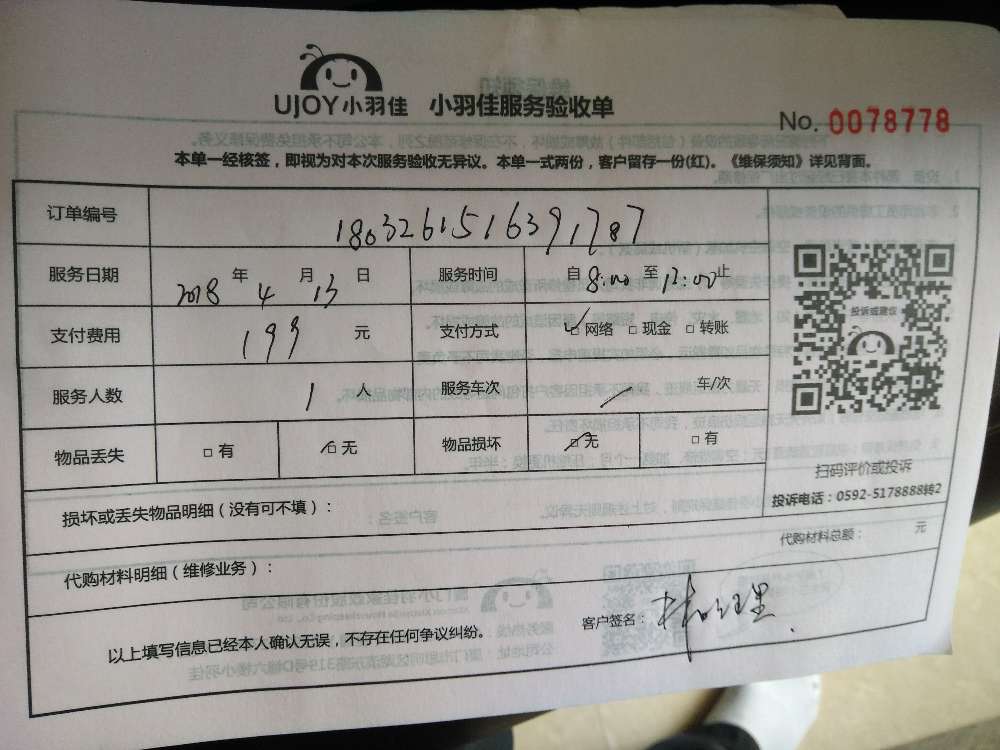 UJOY小羽佳 小羽佳服务验收单
No. 0078778
本单一经核签，即视为对本次服务验收无异议。本单一式两份，客户留存一份(红)。《维保须知》详见背面。
订单编号 1803261516391787
服务日期 2018 年 4 月 13 日 服务时间 自 8:00 至 12:00 止
支付费用 199 元 支付方式 ☑网络 □现金 □转账
服务人数 1 人 服务车次 / 车/次
物品丢失 □有 ☑无 物品损坏 ☑无 □有
投诉或建议
扫码评价或投诉
投诉电话：0592-5178888转2
损坏或丢失物品明细（没有可不填）：
代购材料明细（维修业务）： 代购材料总额： 元
以上填写信息已经本人确认无误，不存在任何争议纠纷。 客户签名： 林经理